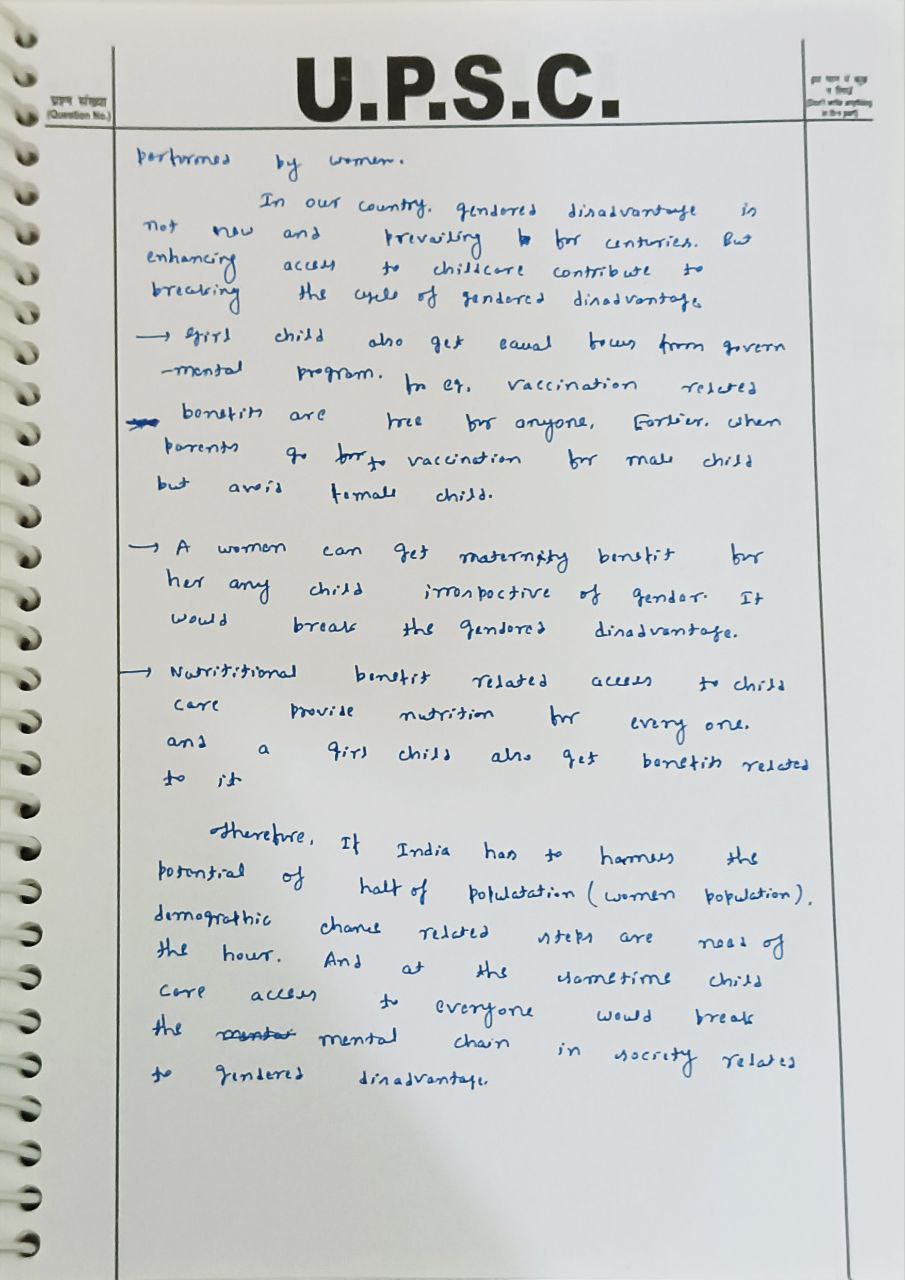 U.P.S.C.
प्रश्न संख्या
(Question No.)
इस भाग में कुछ
न लिखें
(Don't write anything
in this part)
performed by women.
In our country, gendered disadvantage is
not new and prevailing for centuries. But
enhancing access to childcare contribute to
breaking the cycle of gendered disadvantage
→ Girl child also get equal focus from govern
-mental program. eg. vaccination related
benefits are free for anyone. Earlier, when
parents go for to vaccination for male child
but avoid female child.
→ A women can get maternity benefit for
her any child irrespective of gender. It
would break the gendered disadvantage.
→ Nutrititional benefit related access to child
care provide nutrition for every one.
and a girl child also get benefits related
to it
Therefore, If India has to harness the
potential of half of poplulatation (women population),
demographic change related steps are need of
the hour. And at the sametime child
care access to everyone would break
the mental mental chain in society related
to gendered disadvantage.